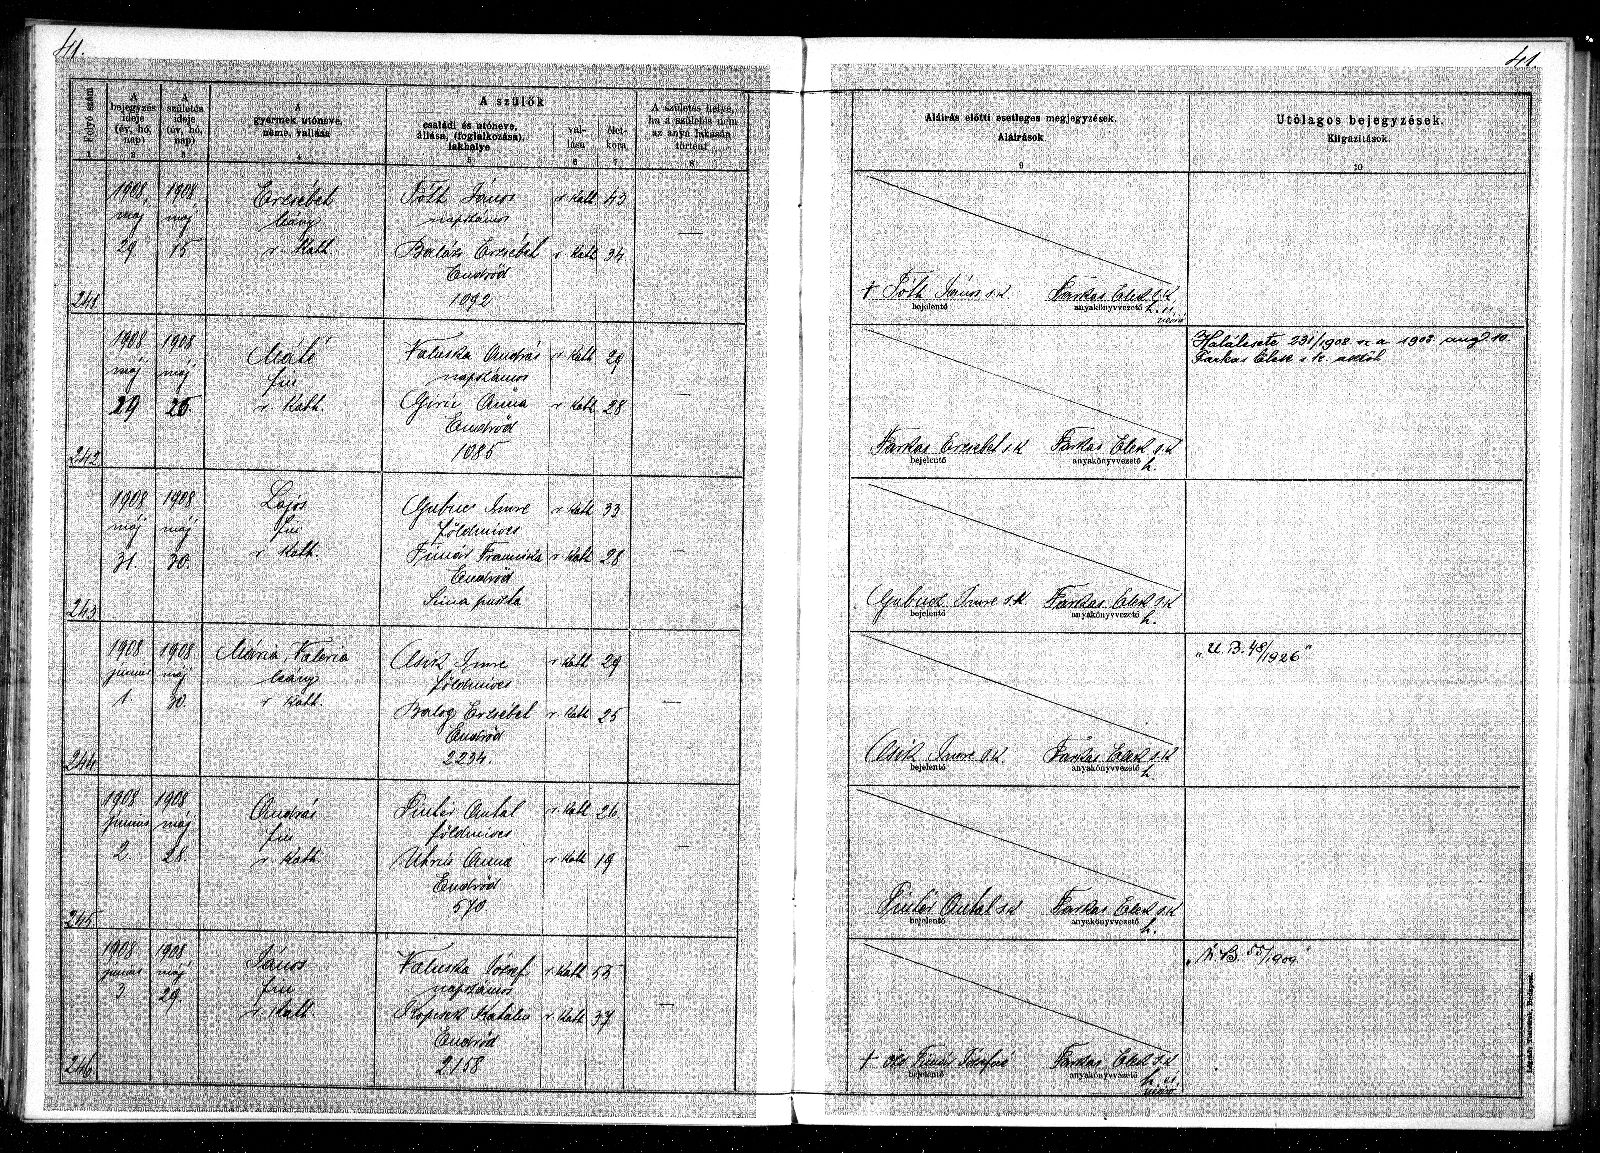 41.
Folyó szám
A bejegyzés ideje (év, hó, nap)
A születés ideje (év, hó, nap)
A gyermek utóneve, neme, vallása
A szülők
családi és utóneve, állása, (foglalkozása), lakhelye
vallása
életkora
A születés helye, ha a születés nem az anya lakásán történt
1 2 3 4 5 6 7 8
241
1908 máj 29
1908 máj 15
Erzsébet
leány
r. Kath
Tóth János r. Kath 43
napszámos
Balázs Erzsébet r. Kath 34
Endrőd
1092
—
242
1908 máj 29
1908 máj 25
Máté
fiu
r. Kath.
Valuska András r. Kath 29
napszámos
Giricz Anna r. Kath 28
Endrőd
1085
—
243
1908 máj 31.
1908 máj 30.
Lajos
fiu
r. Kath.
Gubucz Imre r. Kath 33
földmives
Tímár Franciska r. Kath 28
Endrőd
Sima puszta
—
244
1908 junius 1.
1908 máj 30.
Mária, Valéria
leány
r. Kath.
Csik Imre r. Kath 29
földmives
Balog Erzsébet r. Kath 25
Endrőd
2234.
—
245
1908 junius 2.
1908 máj 28.
András
fiu
r. Kath.
Pintér Antal r. Kath 26
földmives
Uhrin Anna r. Kath 19
Endrőd
570
—
246
1908 junius 3
1908 máj 29.
János
fiu
r. Kath.
Valuska József r. Kath 55
napszámos
Katalin r. Kath 37
Endrőd
2158
—
41
Aláírás előtti esetleges megjegyzések.
Aláírások.
9
Utólagos bejegyzések.
Kiigazítások.
10
+ Tóth János s.k. Farkas Elek s.k.
bejelentő anyakönyvvezető h.
Halálesete 231/1908 sz. a 1908 aug 10.
Farkas Elek s. k.
Farkas Erzsébet s.k Farkas Elek s.k
bejelentő anyakönyvvezető h.
Gubucz Imre s.k Farkas Elek s.k
bejelentő anyakönyvvezető h.
„U. B. 48/1926"
Csik Imre s.k. Farkas Elek s.k
bejelentő anyakönyvvezető h.
Pintér Antal s.k Farkas Elek s.k
bejelentő anyakönyvvezető h.
55/1909
+ Farkas Elek s.k
bejelentő anyakönyvvezető h.
Légrády Testvérek, Budapest.